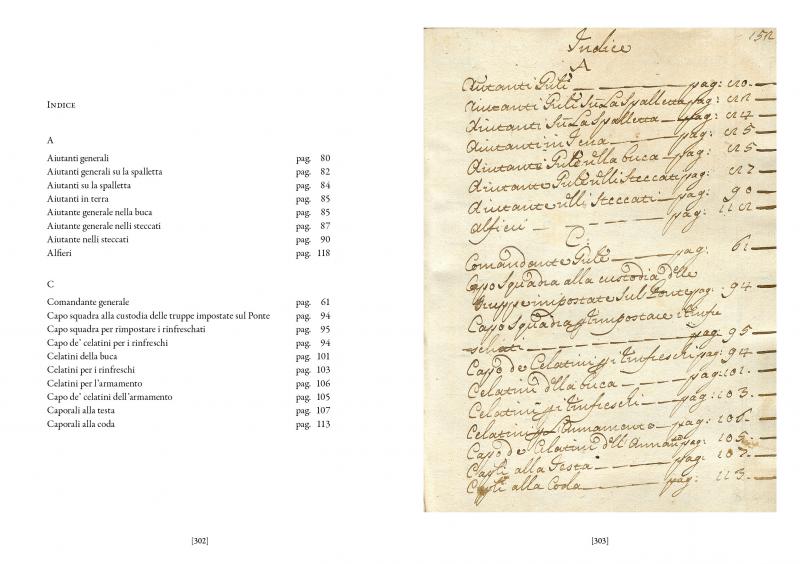 INDICE
A
Aiutanti generali pag. 80
Aiutanti generali su la spalletta pag. 82
Aiutanti su la spalletta pag. 84
Aiutanti in terra pag. 85
Aiutante generale nella buca pag. 85
Aiutante generale nelli steccati pag. 87
Aiutante nelli steccati pag. 90
Alfieri pag. 118
C
Comandante generale pag. 61
Capo squadra alla custodia delle truppe impostate sul Ponte pag. 94
Capo squadra per rimpostare i rinfreschati pag. 95
Capo de' celatini per i rinfreschi pag. 94
Celatini della buca pag. 101
Celatini per i rinfreschi pag. 103
Celatini per l'armamento pag. 106
Capo de' celatini dell'armamento pag. 105
Caporali alla testa pag. 107
Caporali alla coda pag. 113
[302]
Indice
A
Aiutanti Gnli pag: 80.
Aiutanti Gnli su La spalletta pag: 82
Aiutanti su La spalletta pag: 84
Aiutanti in Terra pag: 85
Aiutante Gnle nella buca pag: 85
Aiutante Gnle nelli steccati pag: 87
Aiutante nelli steccati pag: 90
Alfieri pag: 118
C.
Comandante Gnle pag: 61.
Capo squadra alla custodia delle
truppe impostate sul Ponte pag: 94
Capo squadra p rimpostare i rinfre
schati pag: 95
Capo de Celatini p i rinfreschi pag: 94
Celatini della buca pag: 101.
Celatini p i rinfreschi pag: 103.
Celatini p l'Armamento pag: 106.
Capo de Celatini dell'Armam.to pag: 105
Capli alla Testa pag: 107.
Capli alla Coda pag: 113.
[303]